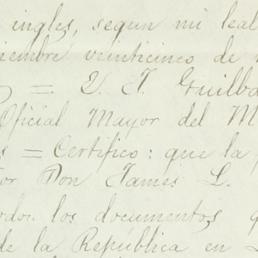 ingles, segun mi leal
iembre veinticinco de
= V. T. Guilba
Oficial Mayor del M
s = Certifico: que la
or Don James L.
odos los documentos q
de la República en L